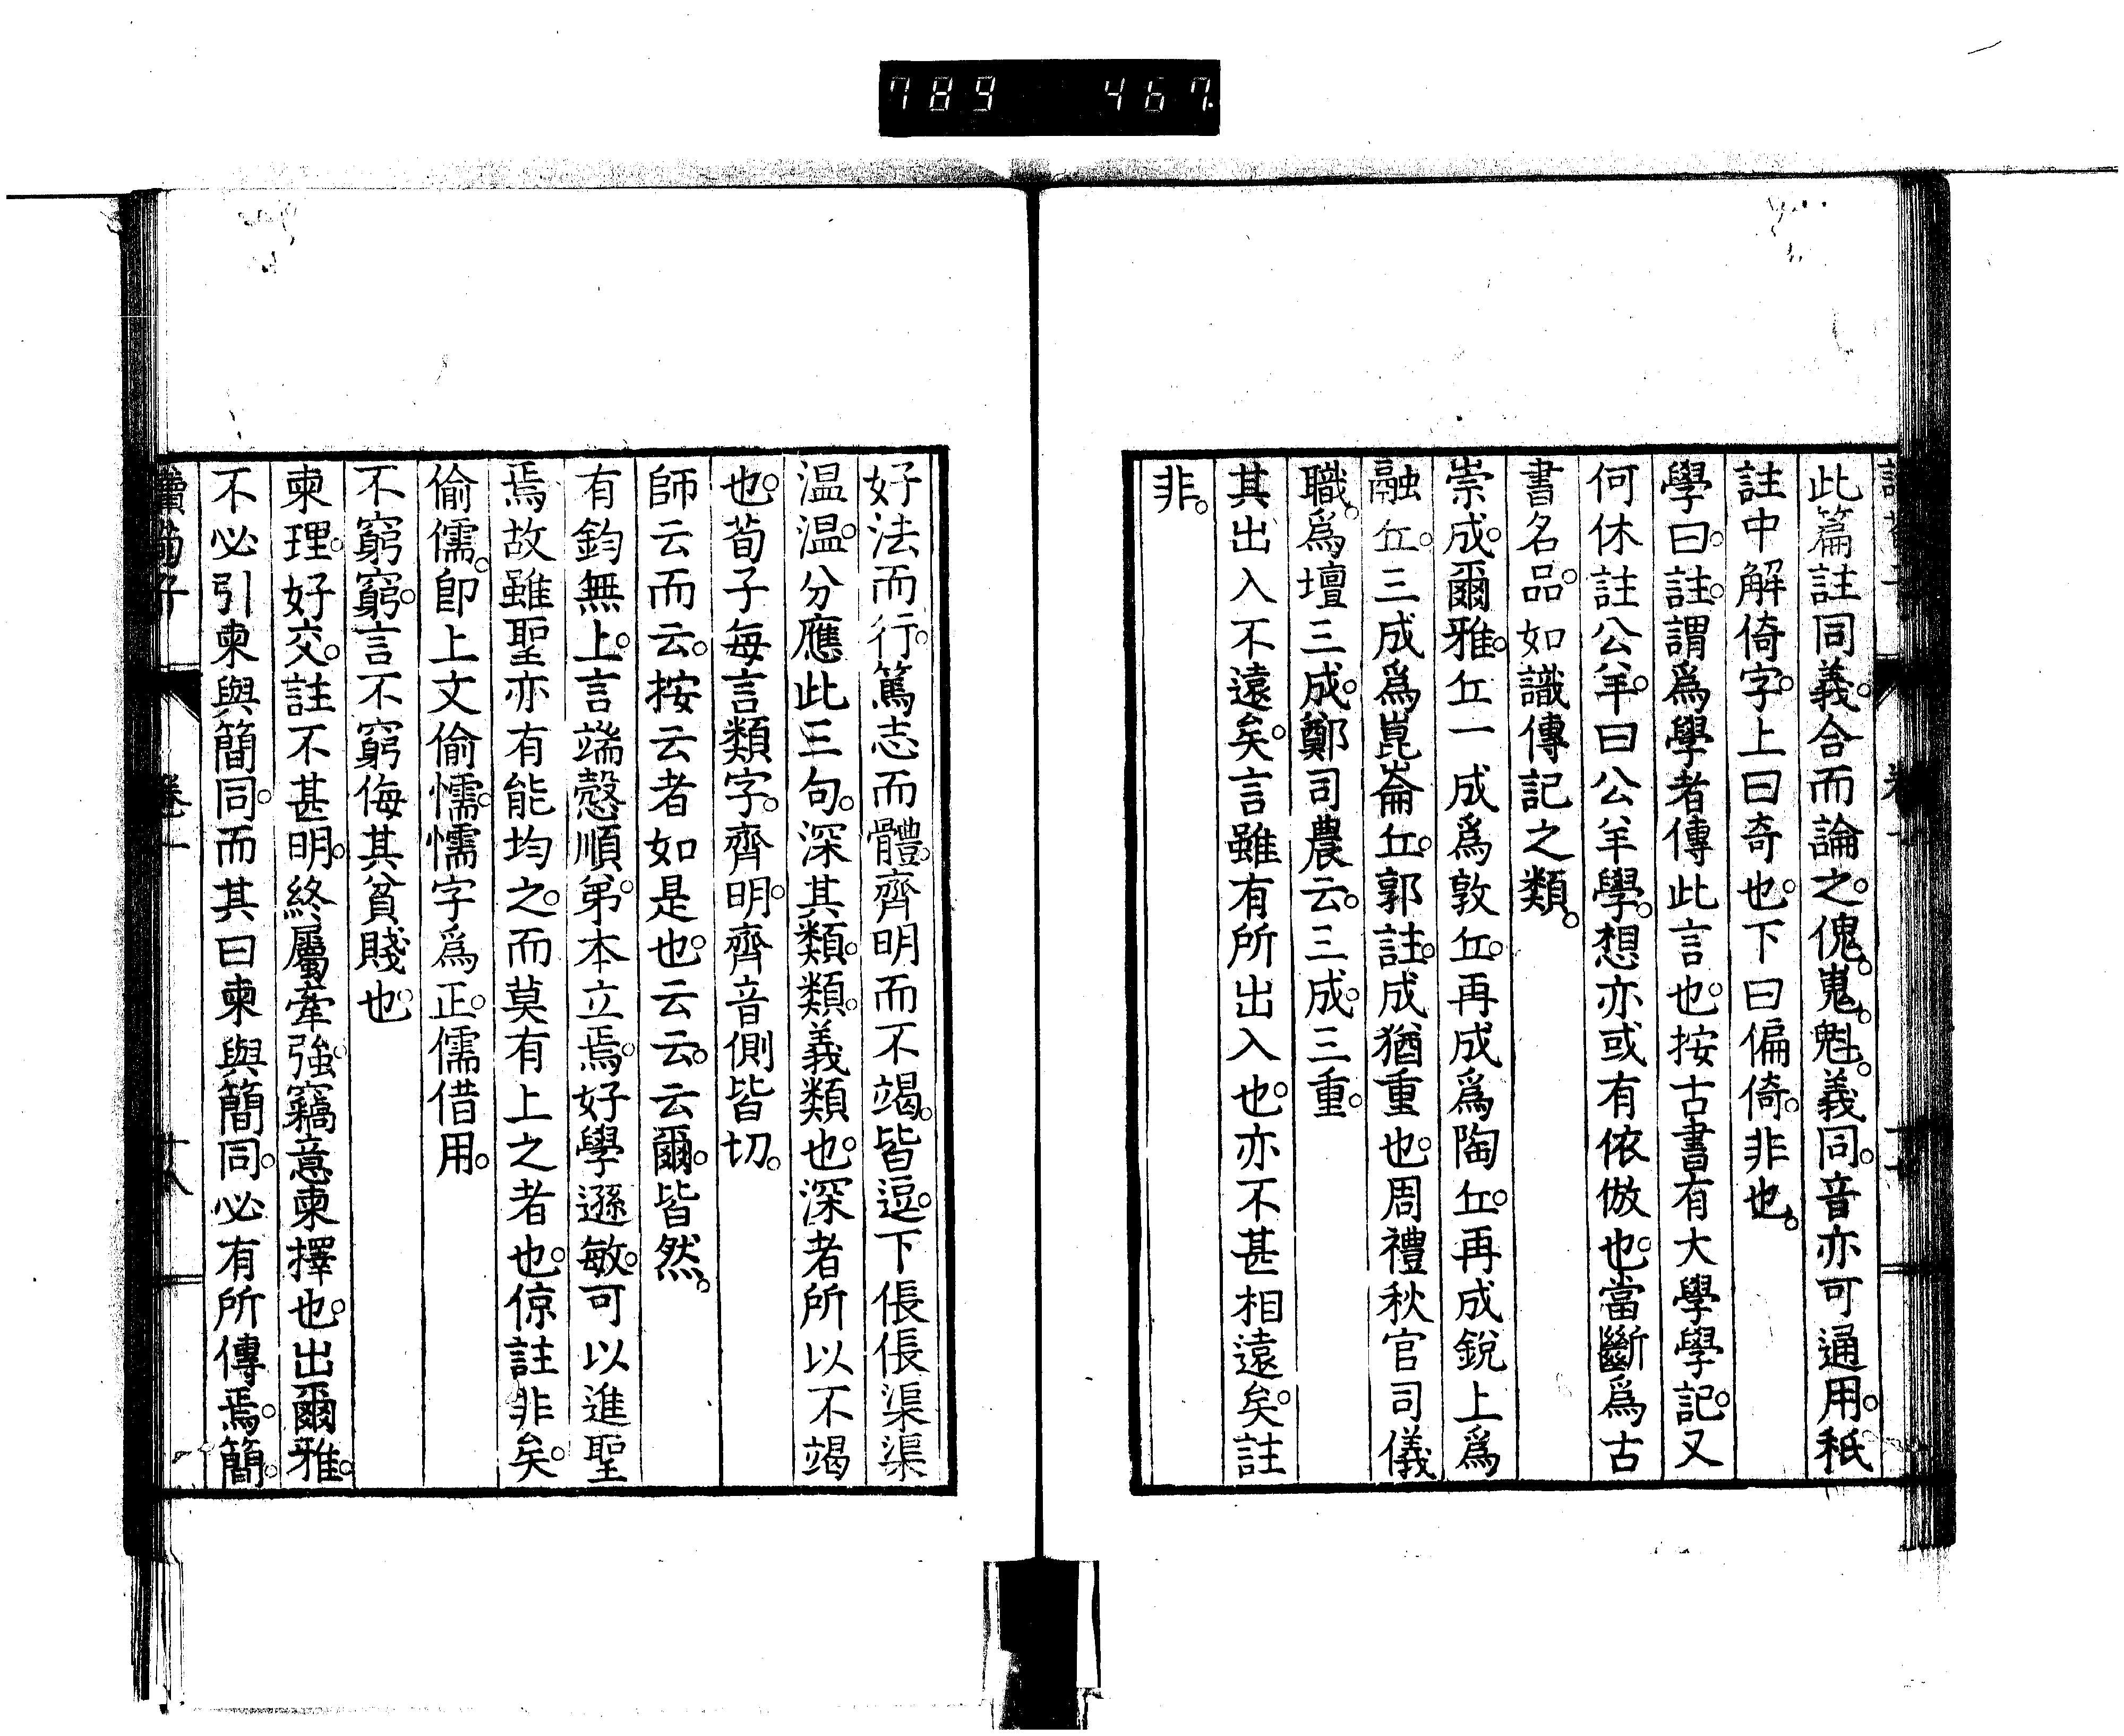 789 467
此篇註同義。合而論之。傀。嵬。魁。義同。音亦可通用。秖
註中解倚字。上曰奇也。下曰偏倚。非也。
學曰。註。謂爲學者傳此言也。按古書有大學學記。又
何休註公羊。曰公羊學。想亦或有依倣也。當斷爲古
書名品。如識傳記之類。
崇成。爾雅。丘一成爲敦丘。再成爲陶丘。再成銳上爲
融丘。三成爲崑崙丘。郭註。成猶重也。周禮秋官司儀
職。爲壇三成。鄭司農云。三成。三重。
其出入不遠矣。言雖有所出入也。亦不甚相遠矣。註
非。
好法而行。篤志而體。齊明而不竭。皆逗。下倀倀渠渠
温温。分應此三句。深其類。類。義類也。深者所以不竭
也。荀子每言類字。齊明。齊音側皆切。
師云而云。按云者如是也。云云。云爾。皆然。
有鈞無上。言端愨順弟。本立焉。好學遜敏。可以進聖
焉故雖聖亦有能均之。而莫有上之者也。倞註非矣。
偷儒。卽上文偷懦。懦字爲正。儒借用。
不窮窮。言不窮侮其貧賤也。
柬理。好交。註不甚明。終屬牽強。竊意柬擇也。出爾雅。
不必引柬與簡同。而其曰柬與簡同。必有所傳焉。簡。
讀荀子 卷一 十八